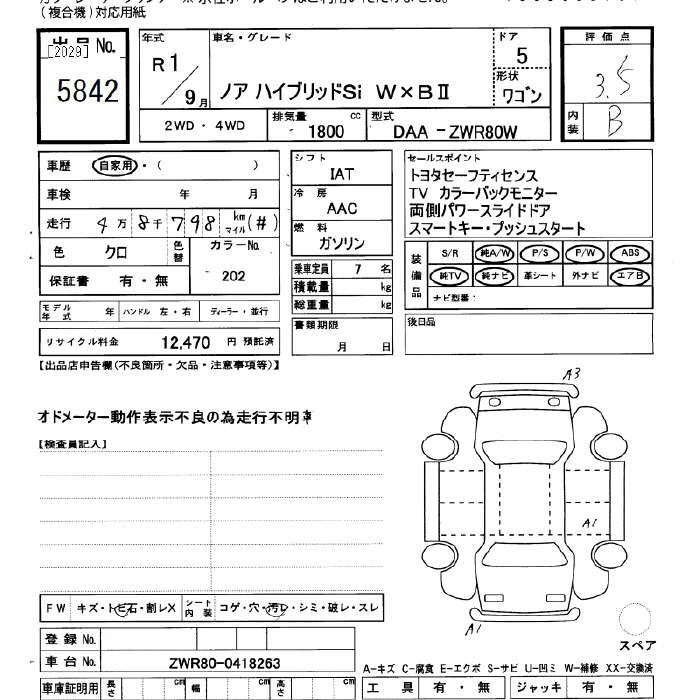 (複合機)対応用紙
出品 No.
[2029]
5842
年式
R1/9月
車名・グレード
ノア ハイブリッドSi W×BⅡ
ドア
5
形状
ワゴン
評価点
3.5
内装
B
2WD・4WD
排気量
1800 cc
型式
DAA-ZWR80W
車歴 自家用・( )
車検 年 月
走行 4万8千798 km マイル (#)
色 クロ 色替 カラーNo. 202
保証書 有・無
シフト
IAT
冷房
AAC
燃料
ガソリン
乗車定員 7 名
積載量 kg
総重量 kg
セールスポイント
トヨタセーフティセンス
TV カラーバックモニター
両側パワースライドドア
スマートキー・プッシュスタート
装備品
S/R 純A/W P/S P/W ABS
純TV 純ナビ 革シート 外ナビ エアB
ナビ型番:
モデル年式 年 ハンドル 左・右 ディーラー・並行
リサイクル料金 12,470 円 預託済
書類期限
月 日
後日品
【出品店申告欄(不良箇所・欠品・注意事項等)】
オドメーター動作表示不良の為走行不明車
【検査員記入】
A3
A1
A1
スペア
FW キズ・トビ石・割レX シート内装 コゲ・穴・汚レ・シミ・破レ・スレ
登録 No.
車台 No. ZWR80-0418263
A-キズ C-腐食 E-エクボ S-サビ U-凹ミ W-補修 XX-交換済
車庫証明用 長さ cm 幅 cm 高さ cm
工具 有・無 ジャッキ 有・無